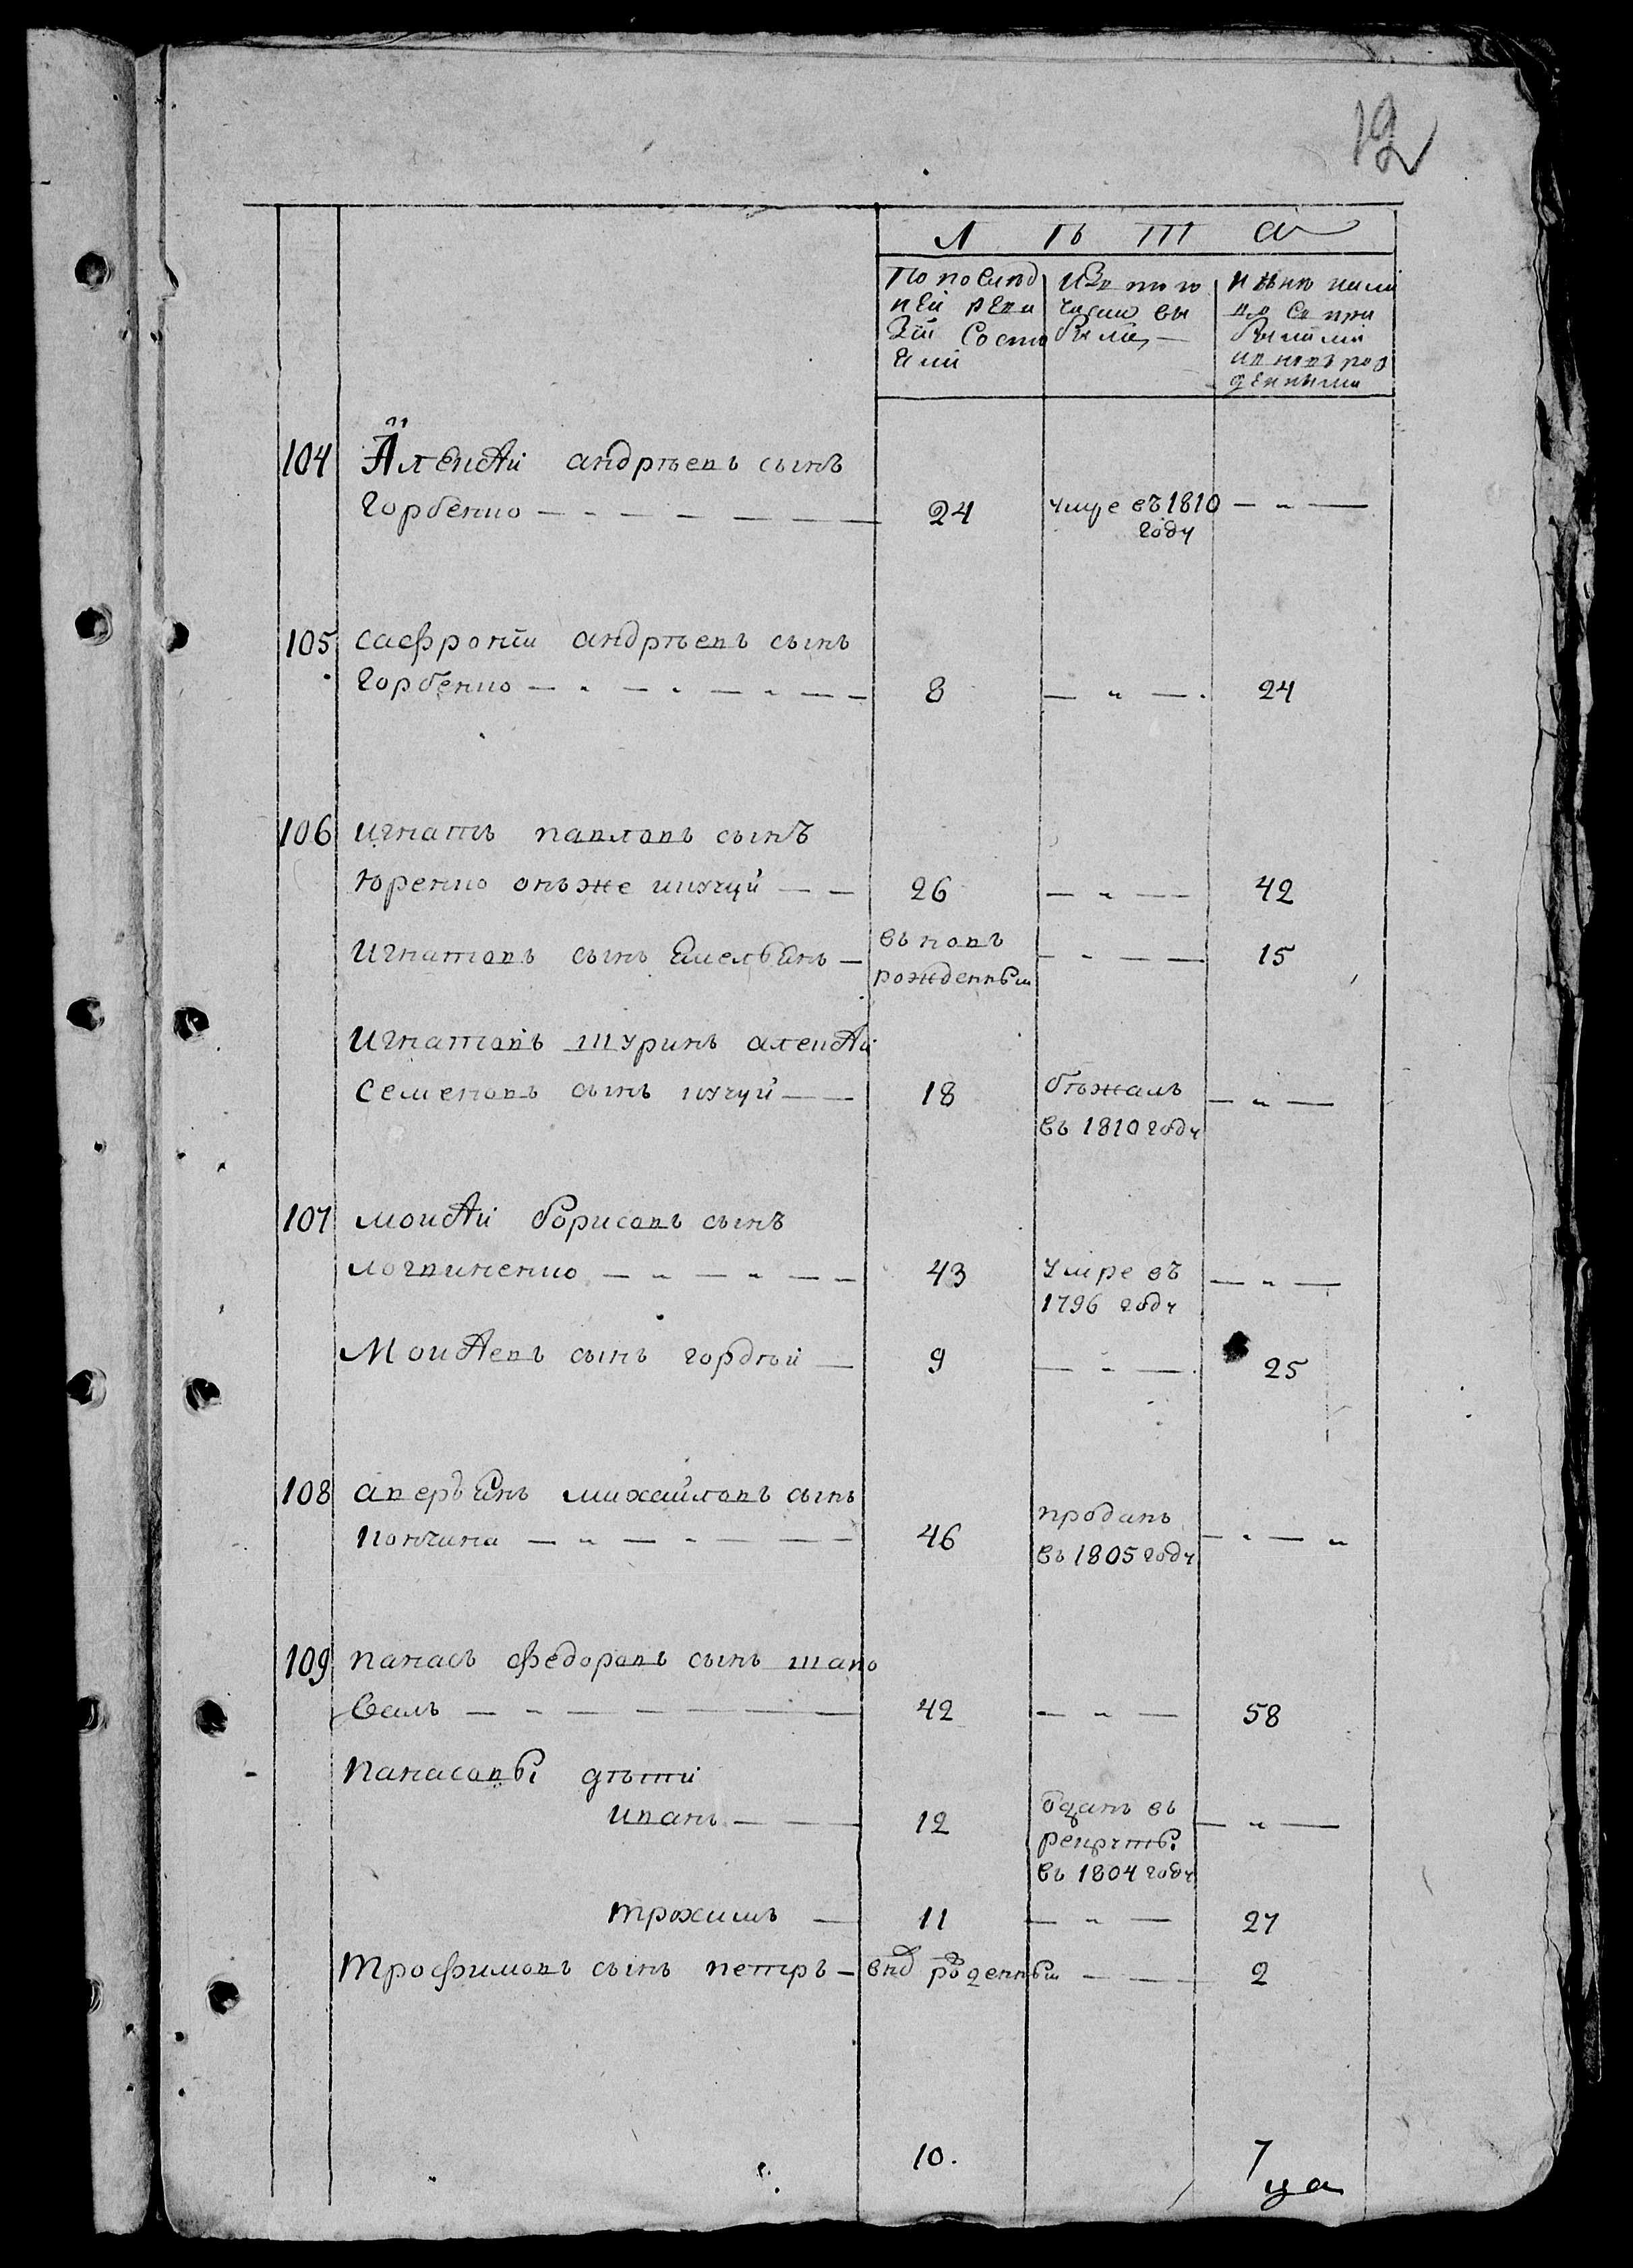 12
Л ѣ т а
По послѣд Изъ того И нынѣ нали
ней реви числа вы цо съ при
зіи состо было, — былыми
яли и вновь рож
денными
104 Алексѣй андрѣевъ сынъ
Горбенко — 24 умре въ 1810 — „ —
году
105 сафроній андрѣевъ сынъ
Горбенко — „ — „ — „ — — 8 — „ — 24
106 игнатъ павловъ сынъ
Юренко онъ же — — 26 — „ — 42
Игнатовъ сынъ Емельянъ — вновь — „ — 15
рожденный
Игнатовъ шуринъ алексѣй
Семеновъ сынъ — — 18 бѣжалъ — „ —
въ 1810 году
107 моисѣй борисовъ сынъ
логвиненко — „ — „ — — 43 умре въ — „ —
1796 году
Моисѣевъ сынъ гордѣй — 9 — „ — 25
108 аверъянъ михайловъ сынъ
кончина — „ — „ — — — 46 проданъ — „ — „
въ 1805 году
109 панасъ федоровъ сынъ шапо
валъ — „ — — — — 42 — „ — 58
Панасовы дѣти
иванъ — — 12 отданъ въ — „ —
рекруты
въ 1804 году
трохимъ — 11 — „ — 27
Трофимовъ сынъ петръ — вно рожденный — — 2
10. 7